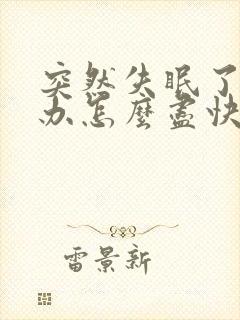 突然失眠了
办怎麼盡快
雷景新